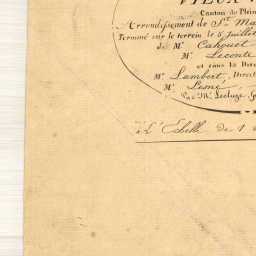 VIEUX
Canton de Plein
Arrondissement de St. Ma
Terminé sur le terrein le 5 juillet
de Mr. Cahouet
Mr. Leconte
et sous la Dire
Mr. Lambert, Direct
Mr. Lesné,
Par Mr. Lecluze, G
à L'Echelle de 1 à